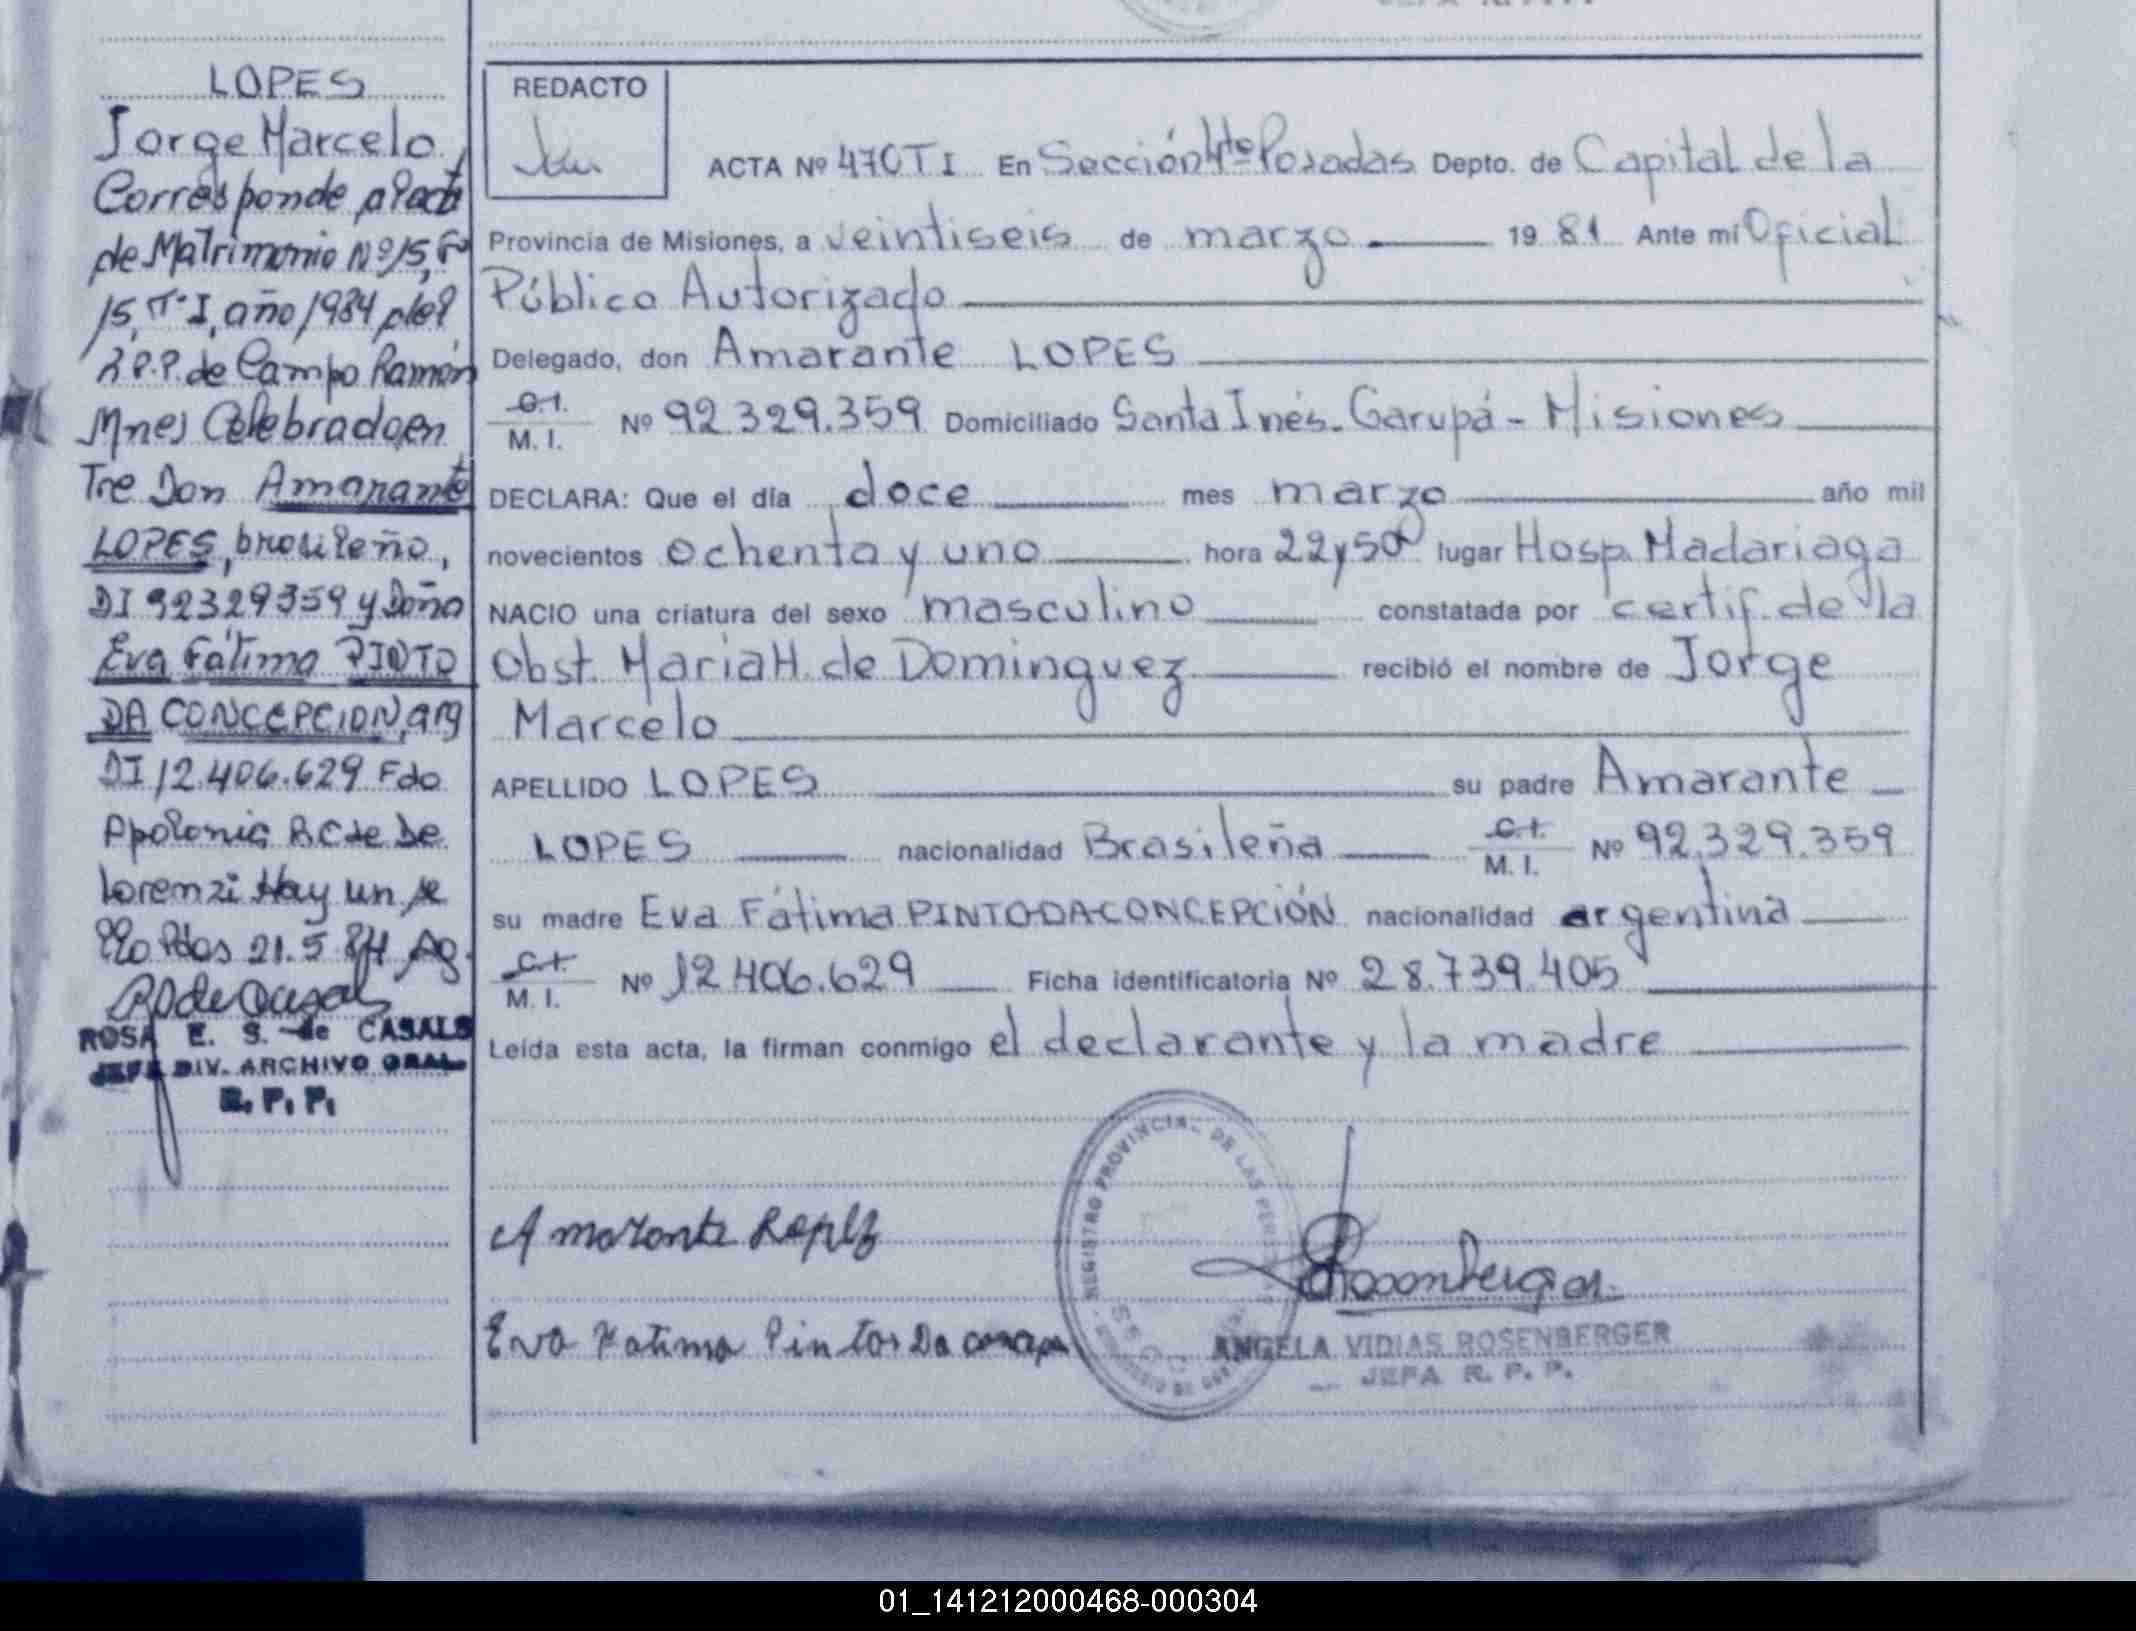 LOPES
Jorge Marcelo
Corresponde al acta
de Matrimonio Nº 15, Fº
15, Tº I, año 1984 del
R.P.P. de Campo Ramón
Mnes Celebrado en
Tre Don Amarante
LOPES, brasileño,
DI 92329359 y Doña
Eva Fátima PINTO
DA CONCEPCION, arg
DI 12.406.629 Fdo
Apolonia R.C de De
Lorenzi Hay un se
llo Pdas 21.5.84 Ag.
ROSA E. S. de CASALS
JEFA DIV. ARCHIVO GRAL
R. P. P.
REDACTO
ACTA Nº 470 T I En Sección 4ta Posadas Depto. de Capital de la
Provincia de Misiones, a veintiseis de marzo 19 81 Ante mi Oficial
Público Autorizado
Delegado, don Amarante LOPES
C.I.
M. I. Nº 92.329.359 Domiciliado Santa Inés. Garupá - Misiones
DECLARA: Que el día doce mes marzo año mil
novecientos ochenta y uno hora 22 y 50 lugar Hosp. Madariaga
NACIO una criatura del sexo masculino constatada por certif. de la
Obst. Maria H. de Dominguez recibió el nombre de Jorge
Marcelo
APELLIDO LOPES su padre Amarante
LOPES nacionalidad Brasileña C.I.
M. I. Nº 92.329.359
su madre Eva Fátima PINTO-DA-CONCEPCIÓN nacionalidad argentina
C.I.
M. I. Nº 12.406.629 Ficha identificatoria Nº 28.739.405
Leída esta acta, la firman conmigo el declarante y la madre
REGISTRO PROVINCIAL DE LAS PERSONAS
Amaronta Lopez
Eva Fatima Pinto Da
ANGELA VIDIAS ROSENBERGER
JEFA R. P. P.
01_141212000468-000304